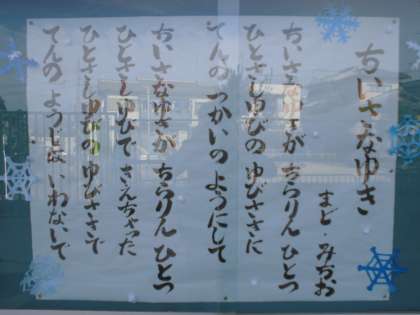 ちいさなゆき
まど・みちお
ちいさなゆきが ちらりん ひとつ
ひとさしゆびの ゆびささに
てんの つかいの ようにして
ちいさなゆきが ちらりん ひとつ
ひとさしゆびで きえちゃった
ひとさしゆびの ゆびさきで
てんの ようじは いわないで